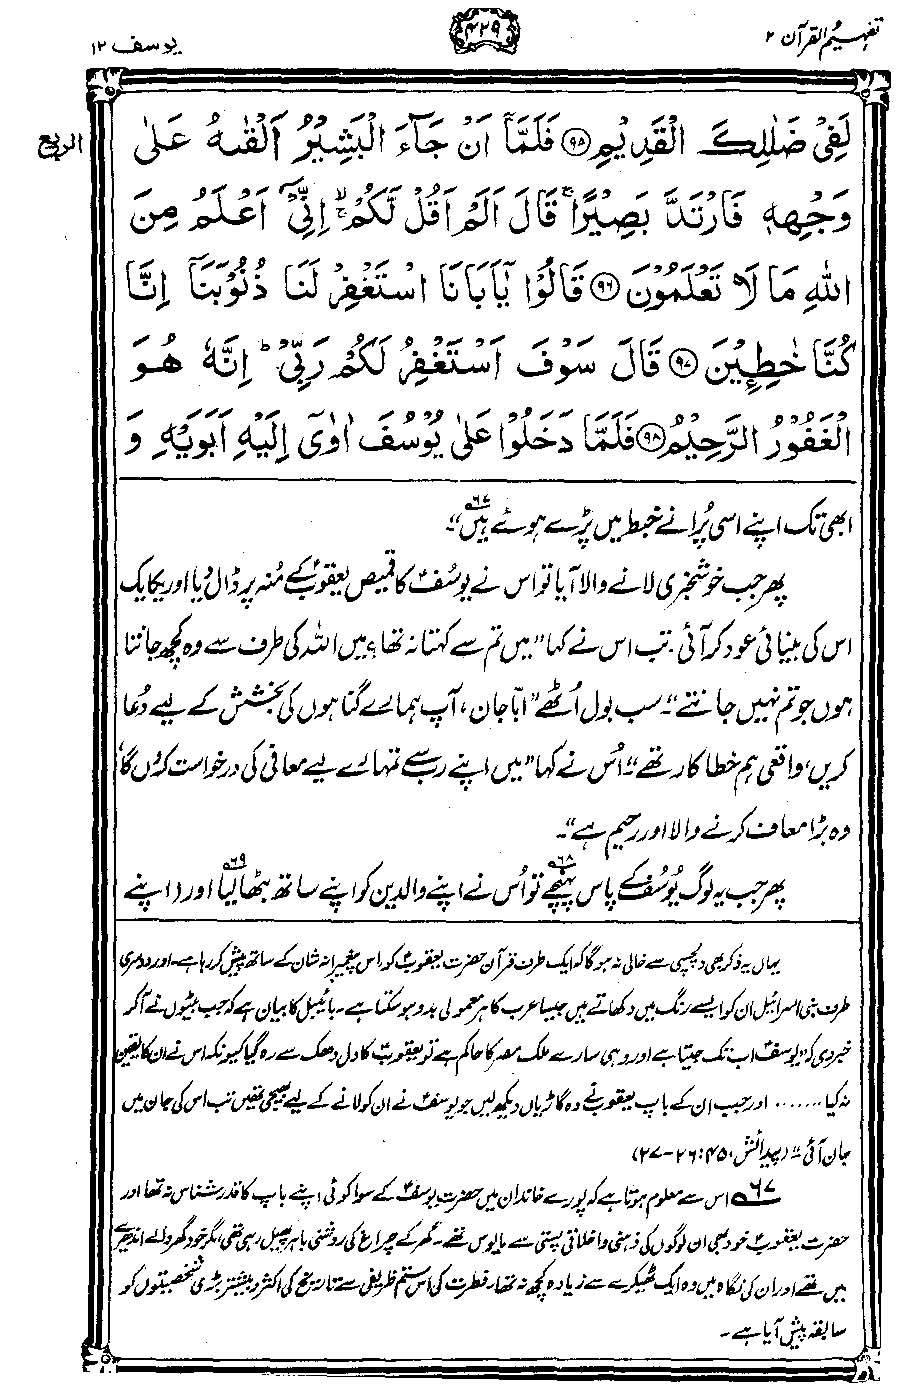 تفہیم القرآن ۲
۴۲۹
یوسف ۱۲
الربع
لَفِیْ ضَلٰلِكَ الْقَدِیْمِ ﴿۹۵﴾ فَلَمَّاۤ اَنْ جَآءَ الْبَشِیْرُ اَلْقٰىهُ عَلٰى
وَجْهِهٖ فَارْتَدَّ بَصِیْرًا ۚ قَالَ اَلَمْ اَقُلْ لَّكُمْ ۙۚ اِنِّیْۤ اَعْلَمُ مِنَ
اللّٰهِ مَا لَا تَعْلَمُوْنَ ﴿۹۶﴾ قَالُوْا یٰۤاَبَانَا اسْتَغْفِرْ لَنَا ذُنُوْبَنَاۤ اِنَّا
كُنَّا خٰطِـِٕیْنَ ﴿۹۷﴾ قَالَ سَوْفَ اَسْتَغْفِرُ لَكُمْ رَبِّیْ ؕ اِنَّهٗ هُوَ
الْغَفُوْرُ الرَّحِیْمُ ﴿۹۸﴾ فَلَمَّا دَخَلُوْا عَلٰى یُوْسُفَ اٰوٰۤى اِلَیْهِ اَبَوَیْهِ وَ
ابھی تک اپنے اسی پُرانے خبط میں پڑے ہوئے ہیں۶۷"۔
پھر جب خوشخبری لانے والا آیا تو اس نے یوسُفؑ کا قمیص یعقوبؑ کے مُنہ پر ڈال دیا اور یکایک
اس کی بینائی عود کر آئی۔ تب اس نے کہا "میں تم سے کہتا نہ تھا؟ میں اللہ کی طرف سے وہ کچھ جانتا
ہوں جو تم نہیں جانتے"۔ سب بول اُٹھے "ابّا جان، آپ ہمارے گناہوں کی بخشش کے لیے دُعا
کریں، واقعی ہم خطاکار تھے"۔ اُس نے کہا "میں اپنے رب سے تمہارے لیے معافی کی درخواست کروں گا،
وہ بڑا معاف کرنے والا اور رحیم ہے"۔
پھر جب یہ لوگ یُوسُفؑ کے پاس پہنچے۶۸ تو اُس نے اپنے والدین کو اپنے ساتھ بٹھا لیا۶۹ اور (اپنے
یہاں یہ ذکر بھی دلچسپی سے خالی نہ ہوگا کہ ایک طرف قرآن حضرت یعقوبؑ کو اس پیغمبرانہ شان کے ساتھ پیش کر رہا ہے۔ اور دوسری
طرف بنی اسرائیل ان کو ایسے رنگ میں دکھاتے ہیں جیسا عرب کا ہر معمولی بدو ہو سکتا ہے۔ بائیبل کا بیان ہے کہ جب بیٹوں نے آ کر
خبر دی کہ "یوسفؑ اب تک جیتا ہے اور وہی سارے ملک مصر کا حاکم ہے تو یعقوبؑ کا دل دھک سے رہ گیا کیونکہ اس نے ان کا یقین
نہ کیا ....... اور جب ان کے باپ یعقوبؑ نے وہ گاڑیاں دیکھ لیں جو یوسفؑ نے ان کو لانے کے لیے بھیجی تھیں تب اس کی جان میں
جان آئی" (پیدائش، ۴۵: ۲۶-۲۷)
۶۷ اس سے معلوم ہوتا ہے کہ پورے خاندان میں حضرت یوسفؑ کے سوا کوئی اپنے باپ کا قدر شناس نہ تھا اور
حضرت یعقوبؑ خود بھی ان لوگوں کی ذہنی و اخلاقی پستی سے مایوس تھے۔ گھر کے چراغ کی روشنی باہر پھیل رہی تھی، مگر خود گھر والے اندھیرے
میں تھے اور ان کی نگاہ میں وہ ایک ٹھیکرے سے زیادہ کچھ نہ تھا۔ فطرت کی اس ستم ظریفی سے تاریخ کی اکثر و بیشتر بڑی شخصیتوں کو
سابقہ پیش آیا ہے۔